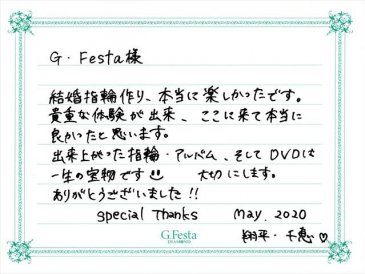 G・Festa様
結婚指輪作り、本当に楽しかったです。
貴重な体験が出来、ここに来て本当に
良かったと思います。
出来上がった指輪・アルバム、そしてDVDは
一生の宝物です 大切にします。
ありがとうございました!!
special Thanks May, 2020
翔平・千恵♡
G.Festa
DIAMOND